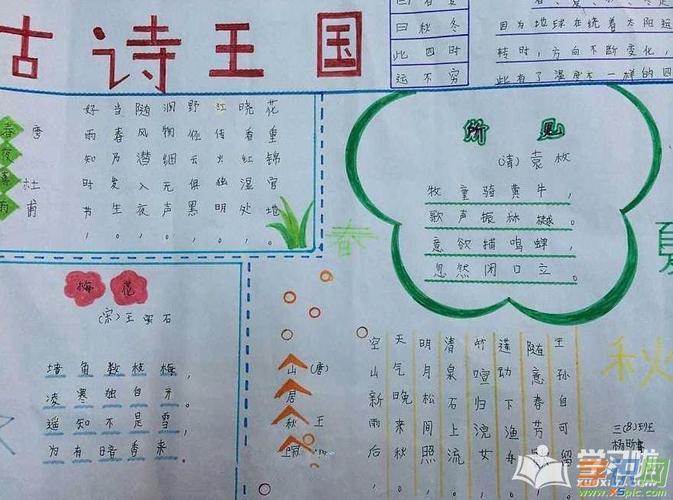 古诗王国
曰秋冬
此四时
运不穷
因为地球在绕着太阳运
转时，方向不断变化，
此有了温度不一样的四
春夜喜雨
唐
杜甫
好雨知时节，
当春乃发生。
随风潜入夜，
润物细无声。
野径云俱黑，
江传火独明。
晓看红湿处，
花重锦官地。
所见
(清)袁枚
牧童骑黄牛，
歌声振林樾。
意欲捕鸣蝉，
忽然闭口立。
春
夏
秋
梅花
(宋)王安石
墙角数枝梅，
凌寒独自开。
遥知不是雪，
为有暗香来。
山居秋暝
(唐)
王
空山新雨后，
天气晚来秋。
明月松间照，
清泉石上流。
竹喧归浣女，
莲动下渔舟。
随意春芳
王孙自可留。
三(8)班